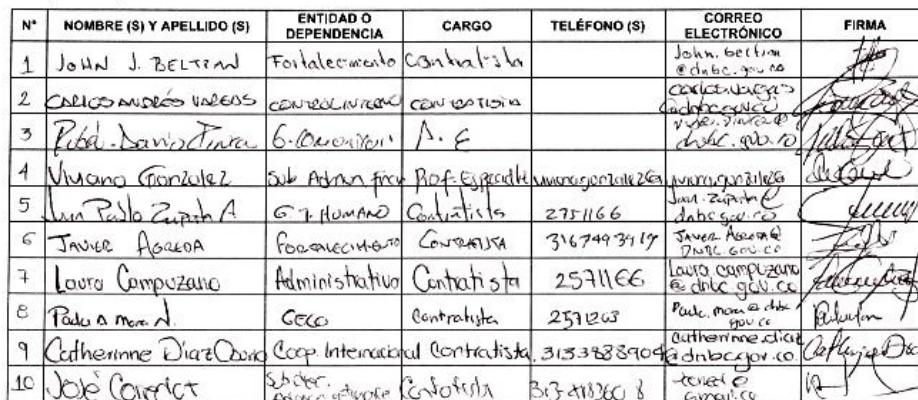 N° NOMBRE (S) Y APELLIDO (S) ENTIDAD O DEPENDENCIA CARGO TELÉFONO (S) CORREO ELECTRÓNICO FIRMA
1 JOHN J. BELTRAN Fortalecimiento Contratista John.beltran @dnbc.gov.co
2 CARLOS ANDRÉS VARGAS CONTROL INTERNO CONTRATISTA carlos.vargas @dnbc.gov.co
3 David A. E dnbc.gov.co
4 Viviana Gonzalez Sub Admin finan Prof. Especializ viviana.gonzalez@ viviana.gonzalez@
5 Juan Pablo Zapata A G. T. HUMANO Contratista 2751166 Juan.zapata@ dnbc.gov.co
6 JAVIER AGREDA FORTALECIMIENTO CONTRATISTA 3167493419 JAVIER.AGREDA@ DNBC.GOV.CO
7 Laura Campuzano Administrativo Contratista 2571166 Laura.campuzano @dnbc.gov.co
8 Paula A Mora N. GECO Contratista 2571263 Paula.mora@dnbc gov.co
9 Catherinne Diaz Osorio Coop. Internacional Contratista 3153888904 Catherinne.diaz @dnbc.gov.co
10 José Contratista gmail.co